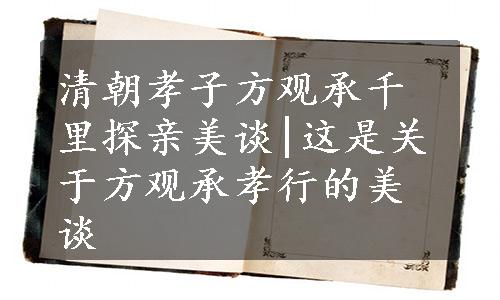 清朝孝子方观承千
里探亲美谈|这是关
于方观承孝行的美
谈